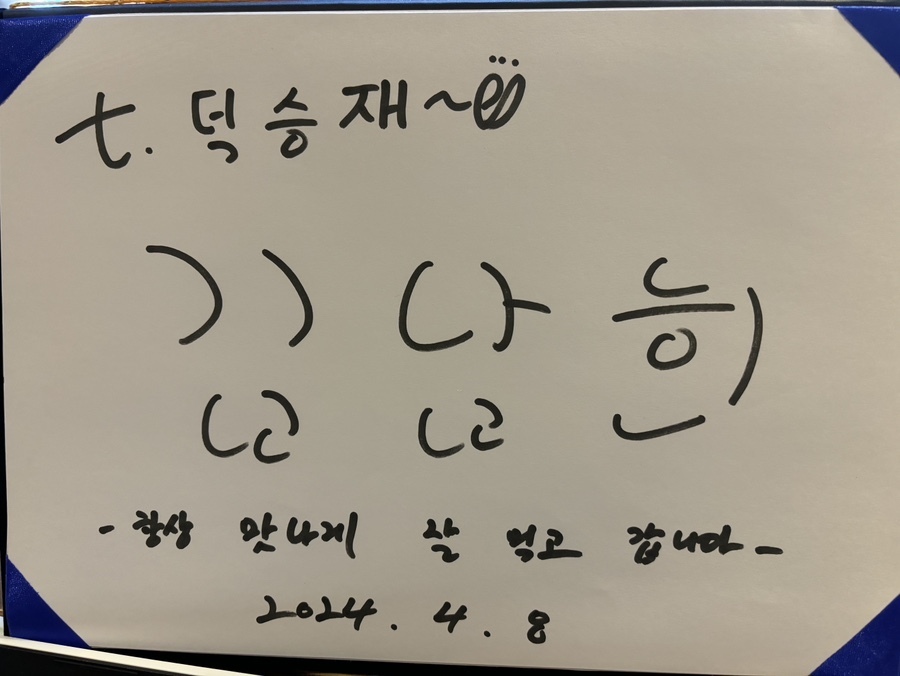 t. 덕승재~
김남희
- 항상 맛나게 잘 먹고 갑니다 -
2024. 4. 8